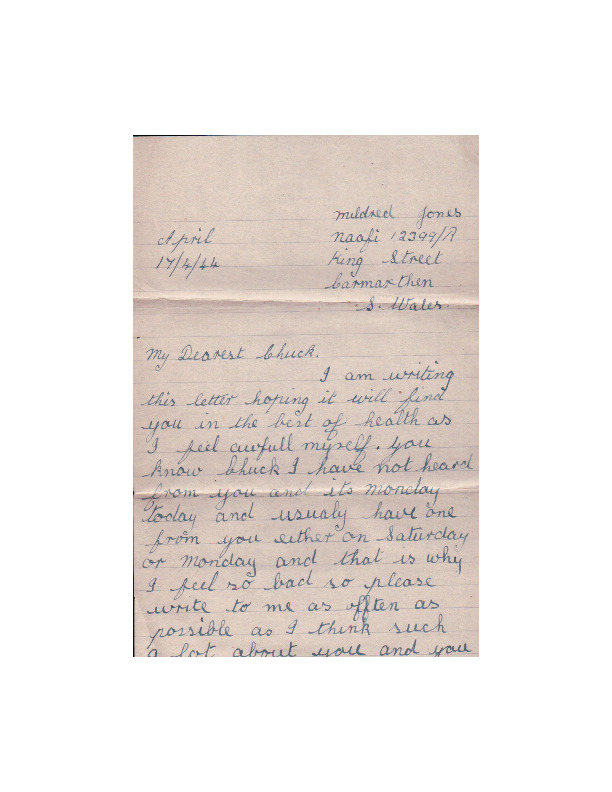 Mildred Jones
April
Naafi 12399/A
17/4/44
King Street
Carmarthen
S. Wales.
My Dearest Chuck.
I am writing
this letter hoping it will find
you in the best of health as
I feel awfull myself. you
know Chuck I have not heard
from you and its Monday
today and usualy have one
from you either on Saturday
or Monday and that is why
I feel so bad so please
write to me as offten as
possible as I think such
a lot about you and you